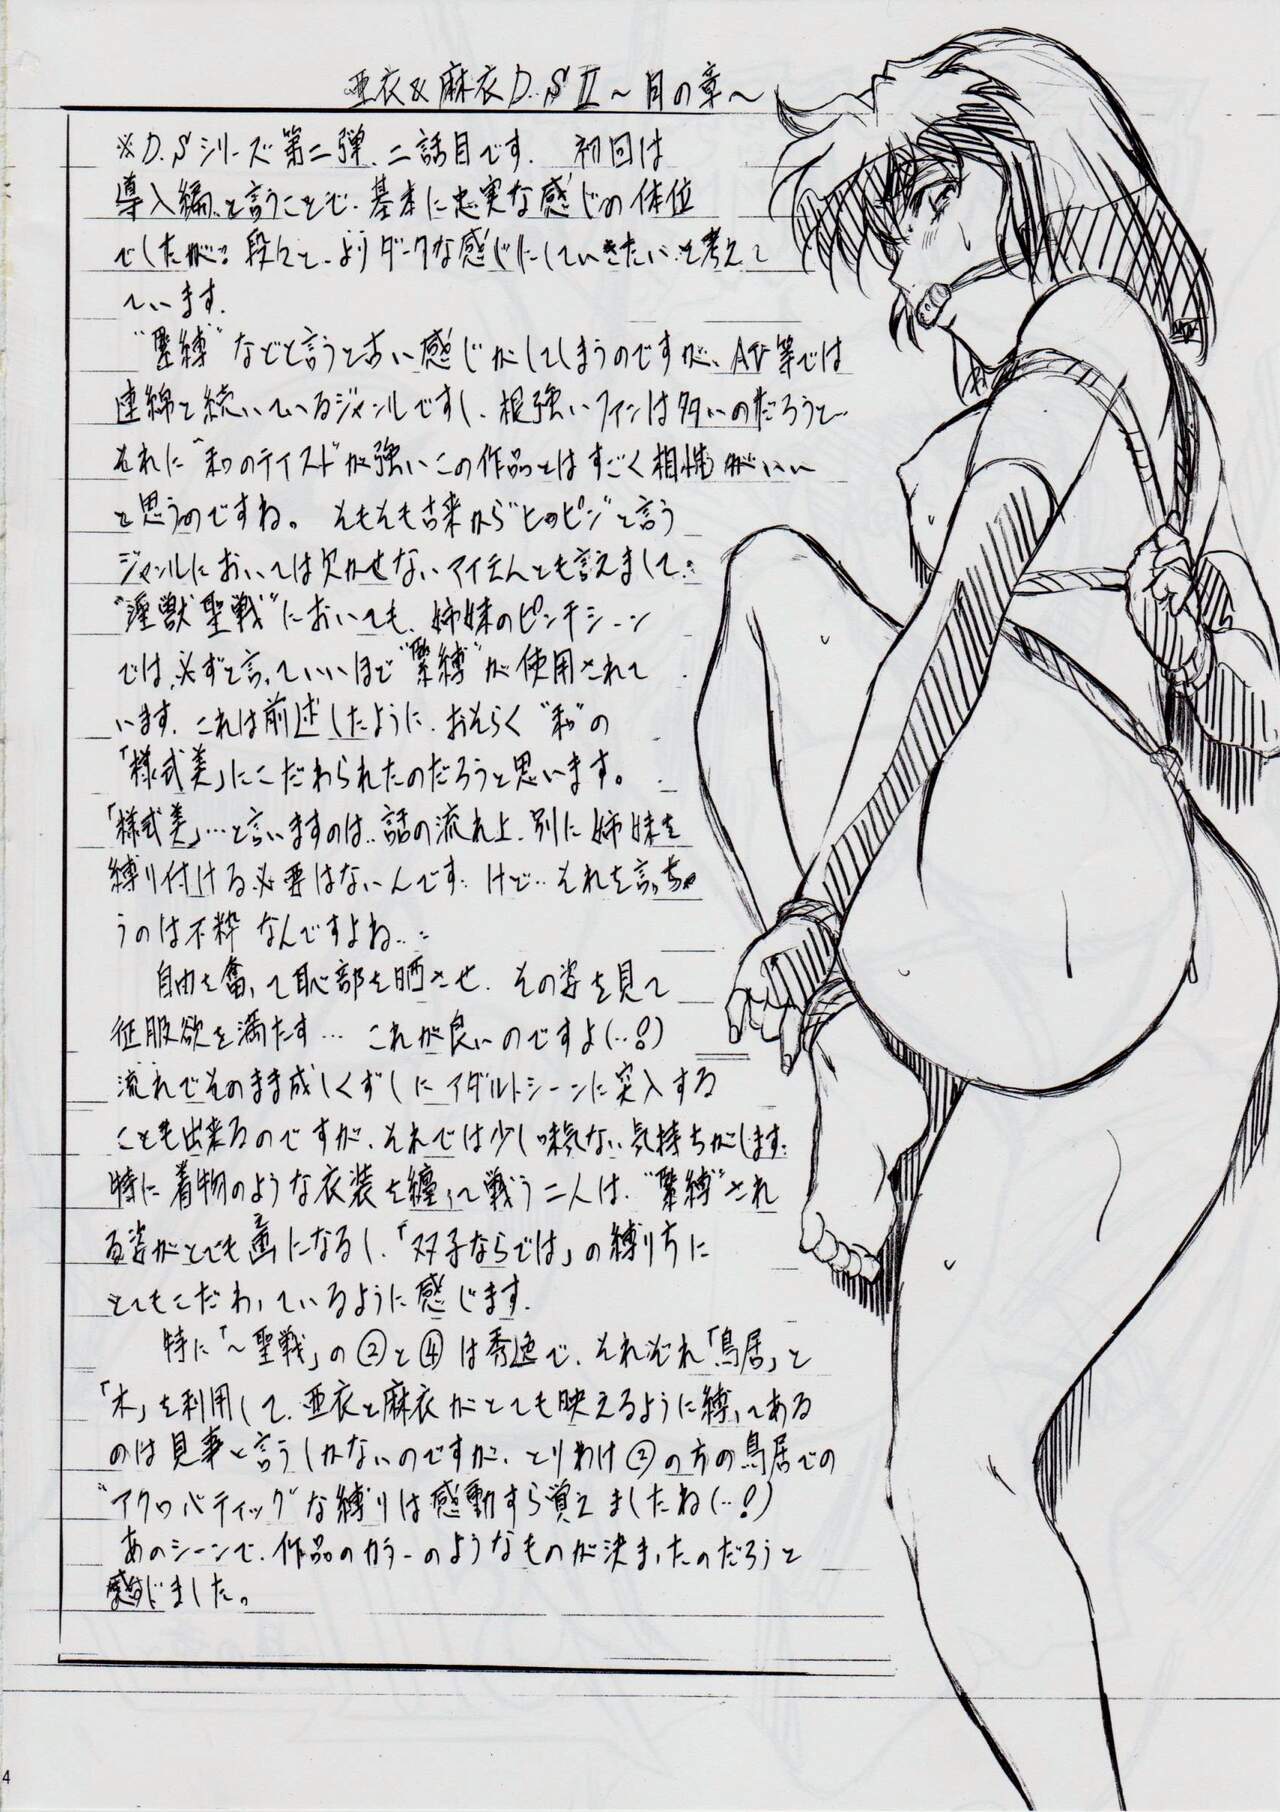 亜衣&麻衣D.SⅡ～月の章～
※D.Sシリーズ第二弾、二話目です。初回は
導入編と言うことで、基本に忠実な感じの体位
でしたが、段々と、よりダークな感じにしていきたいと考えて
います。
"緊縛"などと言うと古い感じがしてしまうのですが、AV等では
連綿と続いているジャンルですし、根強いファンは多いのだろうと
それに"和のテイスト"が強いこの作品とはすごく相性がいい
と思うのですね。そもそも古来から"ヒロピン"と言う
ジャンルにおいては欠かせないアイテムとも言えまして
"淫獣聖戦"においても、姉妹のピンチシーン
では、必ずと言っていいほど"緊縛"が使用されて
います。これは前述したように、おそらく"和"の
「様式美」にこだわられたのだろうと思います。
「様式美」…と言いますのは、話の流れ上、別に姉妹を
縛り付ける必要はないんです…けど…それを言っちゃ
うのは不粋なんですよね…
自由を奪って恥部を晒させ、その姿を見て
征服欲を満たす…これが良いのですよ(…!)
流れでそのまま成しくずしにアダルトシーンに突入する
ことも出来るのですが、それでは少し味気ない気持ちがします。
特に着物のような衣装を纏って戦う二人は、"緊縛"され
る姿がとても画になるし、「双子ならでは」の縛り方に
とてもこだわっているように感じます。
特に「～聖戦」の②と④は秀逸で、それぞれ「鳥居」と
「木」を利用して、亜衣と麻衣がとても映えるように縛ってある
のは見事と言うしかないのですが、とりわけ②の方の鳥居での
"アクロバティック"な縛りは感動すら覚えましたね(…!)
あのシーンで、作品のカラーのようなものが決まったのだろうと
感じました。
4